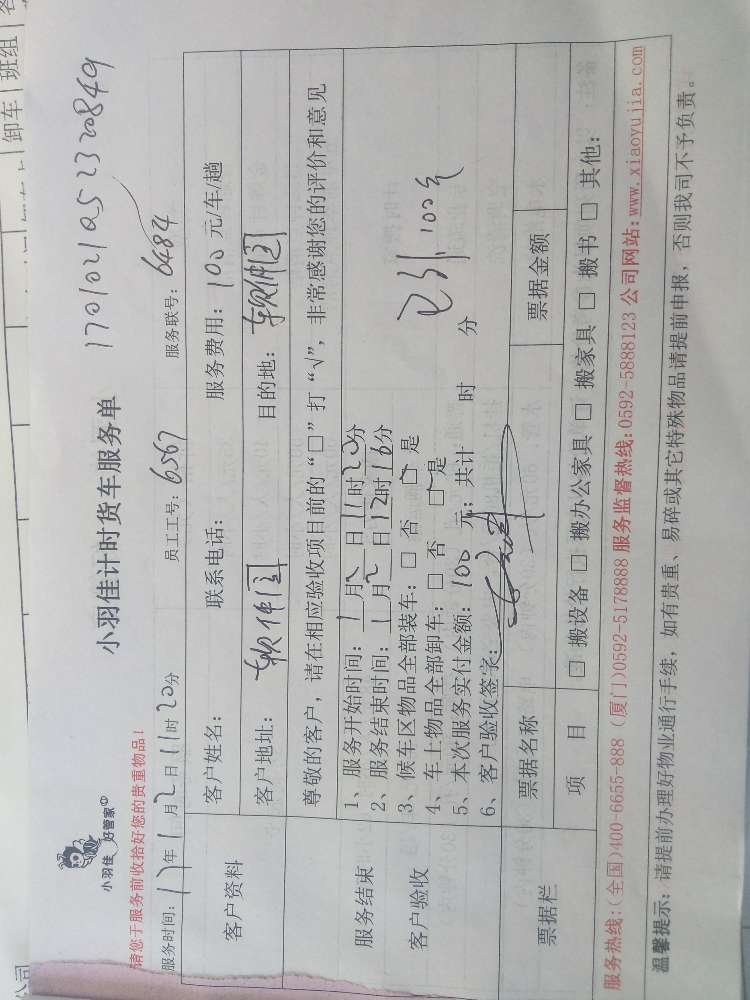 卸车 班组
小羽佳 好管家
小羽佳计时货车服务单
1701021052320849
请您于服务前收拾好您的贵重物品!
服务时间: 17年1月2日11时20分 员工工号: 6567 服务联号: 6484
客户资料
客户姓名: 联系电话: 服务费用: 100元/车/趟
客户地址: 软件园 目的地: 软件园
尊敬的客户,请在相应验收项目前的“□”打“√”,非常感谢您的评价和意见
服务结束
客户验收
1、服务开始时间: 1月2日11时20分
2、服务结束时间: 1月2日12时16分
3、候车区物品全部装车: □ 否 □ 是
4、车上物品全部卸车: □ 否 □ 是
5、本次服务实付金额: 100元; 共计 时 分
6、客户验收签字:
100元
票据栏
票据名称 票据金额
项目 □ 搬设备 □ 搬办公家具 □ 搬家具 □ 搬书 □ 其他:
服务热线:(全国)400-6655-888 (厦门)0592-5178888 服务监督热线:0592-5888123 公司网站: www.xiaoyujia.com
温馨提示: 请提前办理好物业通行手续,如有贵重、易碎或其它特殊物品请提前申报,否则我司不予负责。